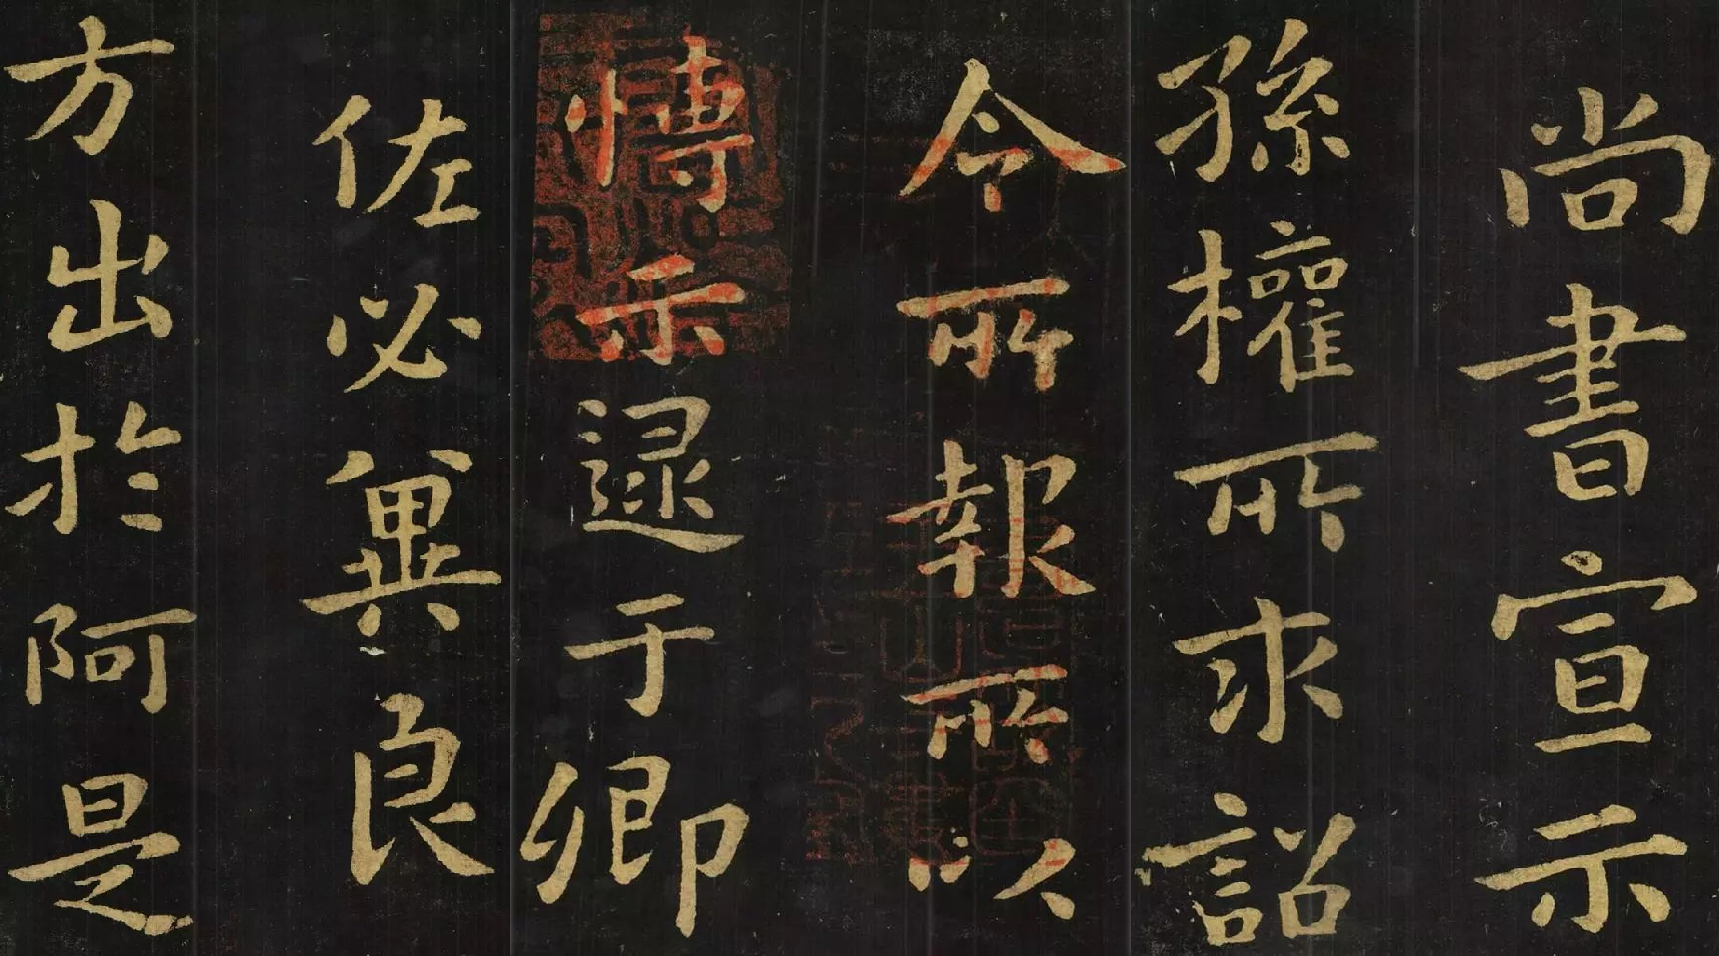 尚書宣示
孫權所求詔
令所報所以
博示逮于卿
佐必冀良
方出於阿是